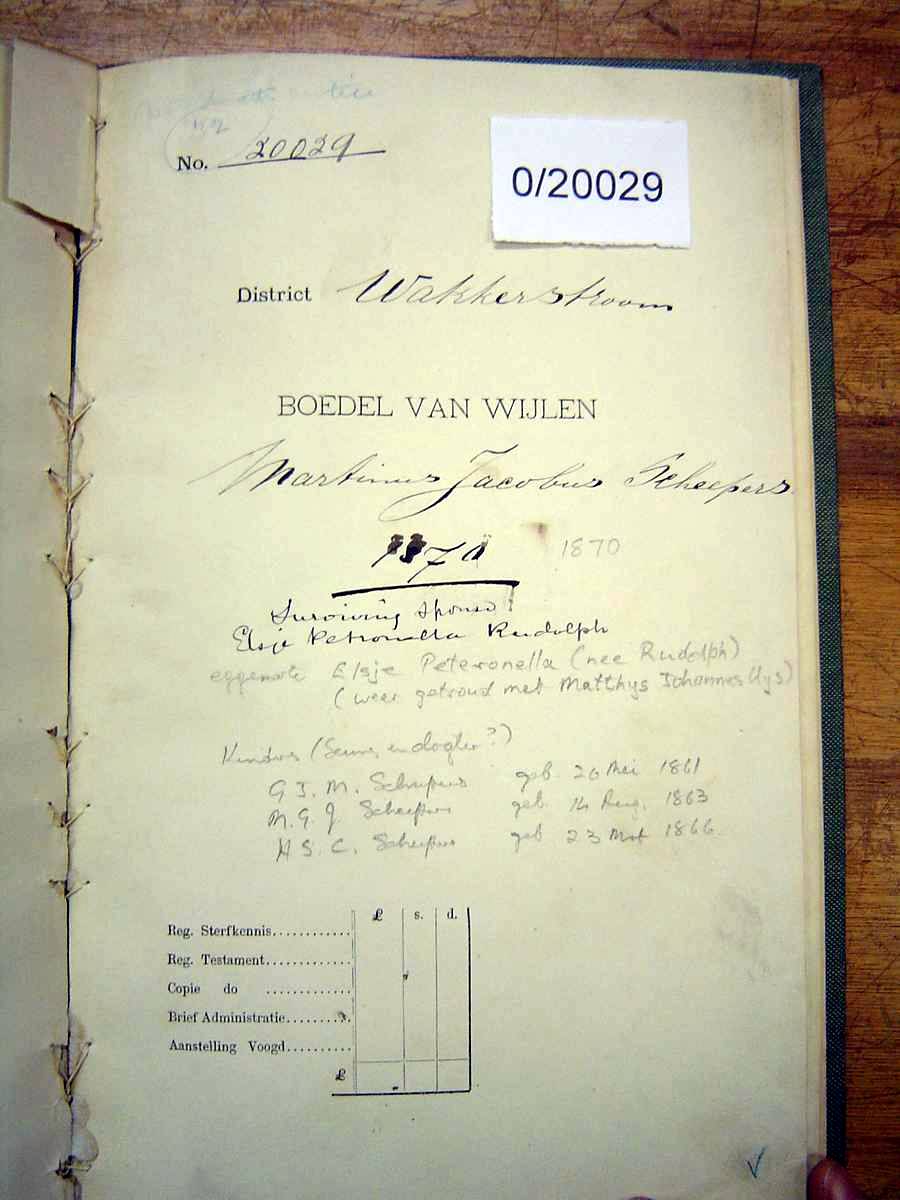 No. 20029
0/20029
District Wakkerstroom
BOEDEL VAN WIJLEN
Martinus Jacobus Scheepers
1870 1870
Surviving spouse:
Elsje Petronella Rudolph
eggenote Elsje Peteronella (nee Rudolph)
(weer getroud met Matthys Johannes Uys)
Kinders (Seuns en dogter?)
G J. M. Scheepers geb. 20 Mei 1861
M. G. J. Scheepers geb. 14 Aug. 1863
H S. C. Scheepers geb 23 Mrt 1866
£ s. d.
Reg. Sterfkennis............
Reg. Testament.............
Copie do .............
Brief Administratie.........
Aanstelling Voogd..........
£